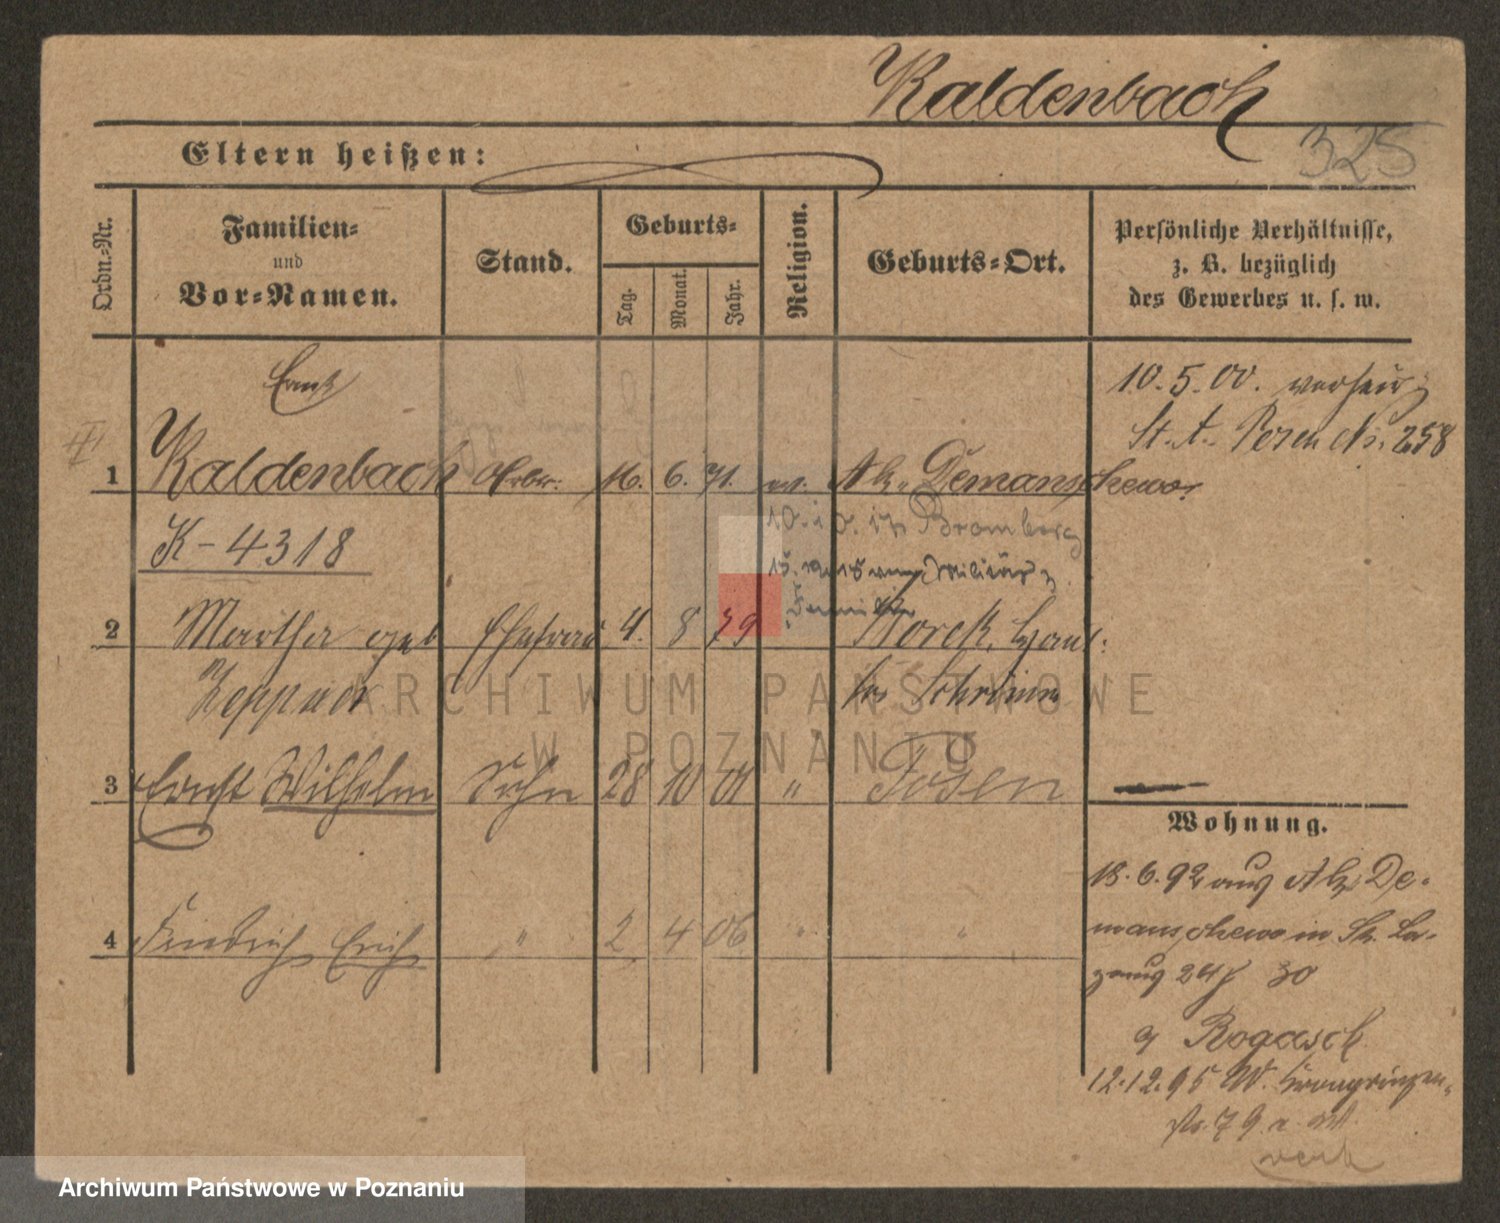 Kaldenbach
325
Eltern heißen:
Ordn.-Nr.
Familien-
und
Vor-Namen.
Stand.
Geburts-
Tag.
Monat.
Jahr.
Religion.
Geburts-Ort.
Persönliche Verhältnisse,
z. B. bezüglich
des Gewerbes u. s. w.
10.5.00. verheir.
St. A. Posen No. 258
Ernst
1 Kaldenbach Arbtr. 16. 6. 71. ev. Alt Demanschewo.
K-4318
10. 10. 17 Bromberg
15. 12. 18 vom Militär z.
Familie
2 Martha geb Ehefrau 4. 8 79 Borek, Haul.
Kr. Schrimm
3 Ernst Wilhelm Sohn 28 10 01 " Posen
4 Friedrich Erich " 2 4 06 " "
Wohnung.
18.6.92 aus Alt De-
manschewo in St. La-
zarus 24 30
Rogasch
12.12.95 W. Kronprinzen-
str. 79.
ARCHIWUM PAŃSTWOWE
W POZNANIU
Archiwum Państwowe w Poznaniu